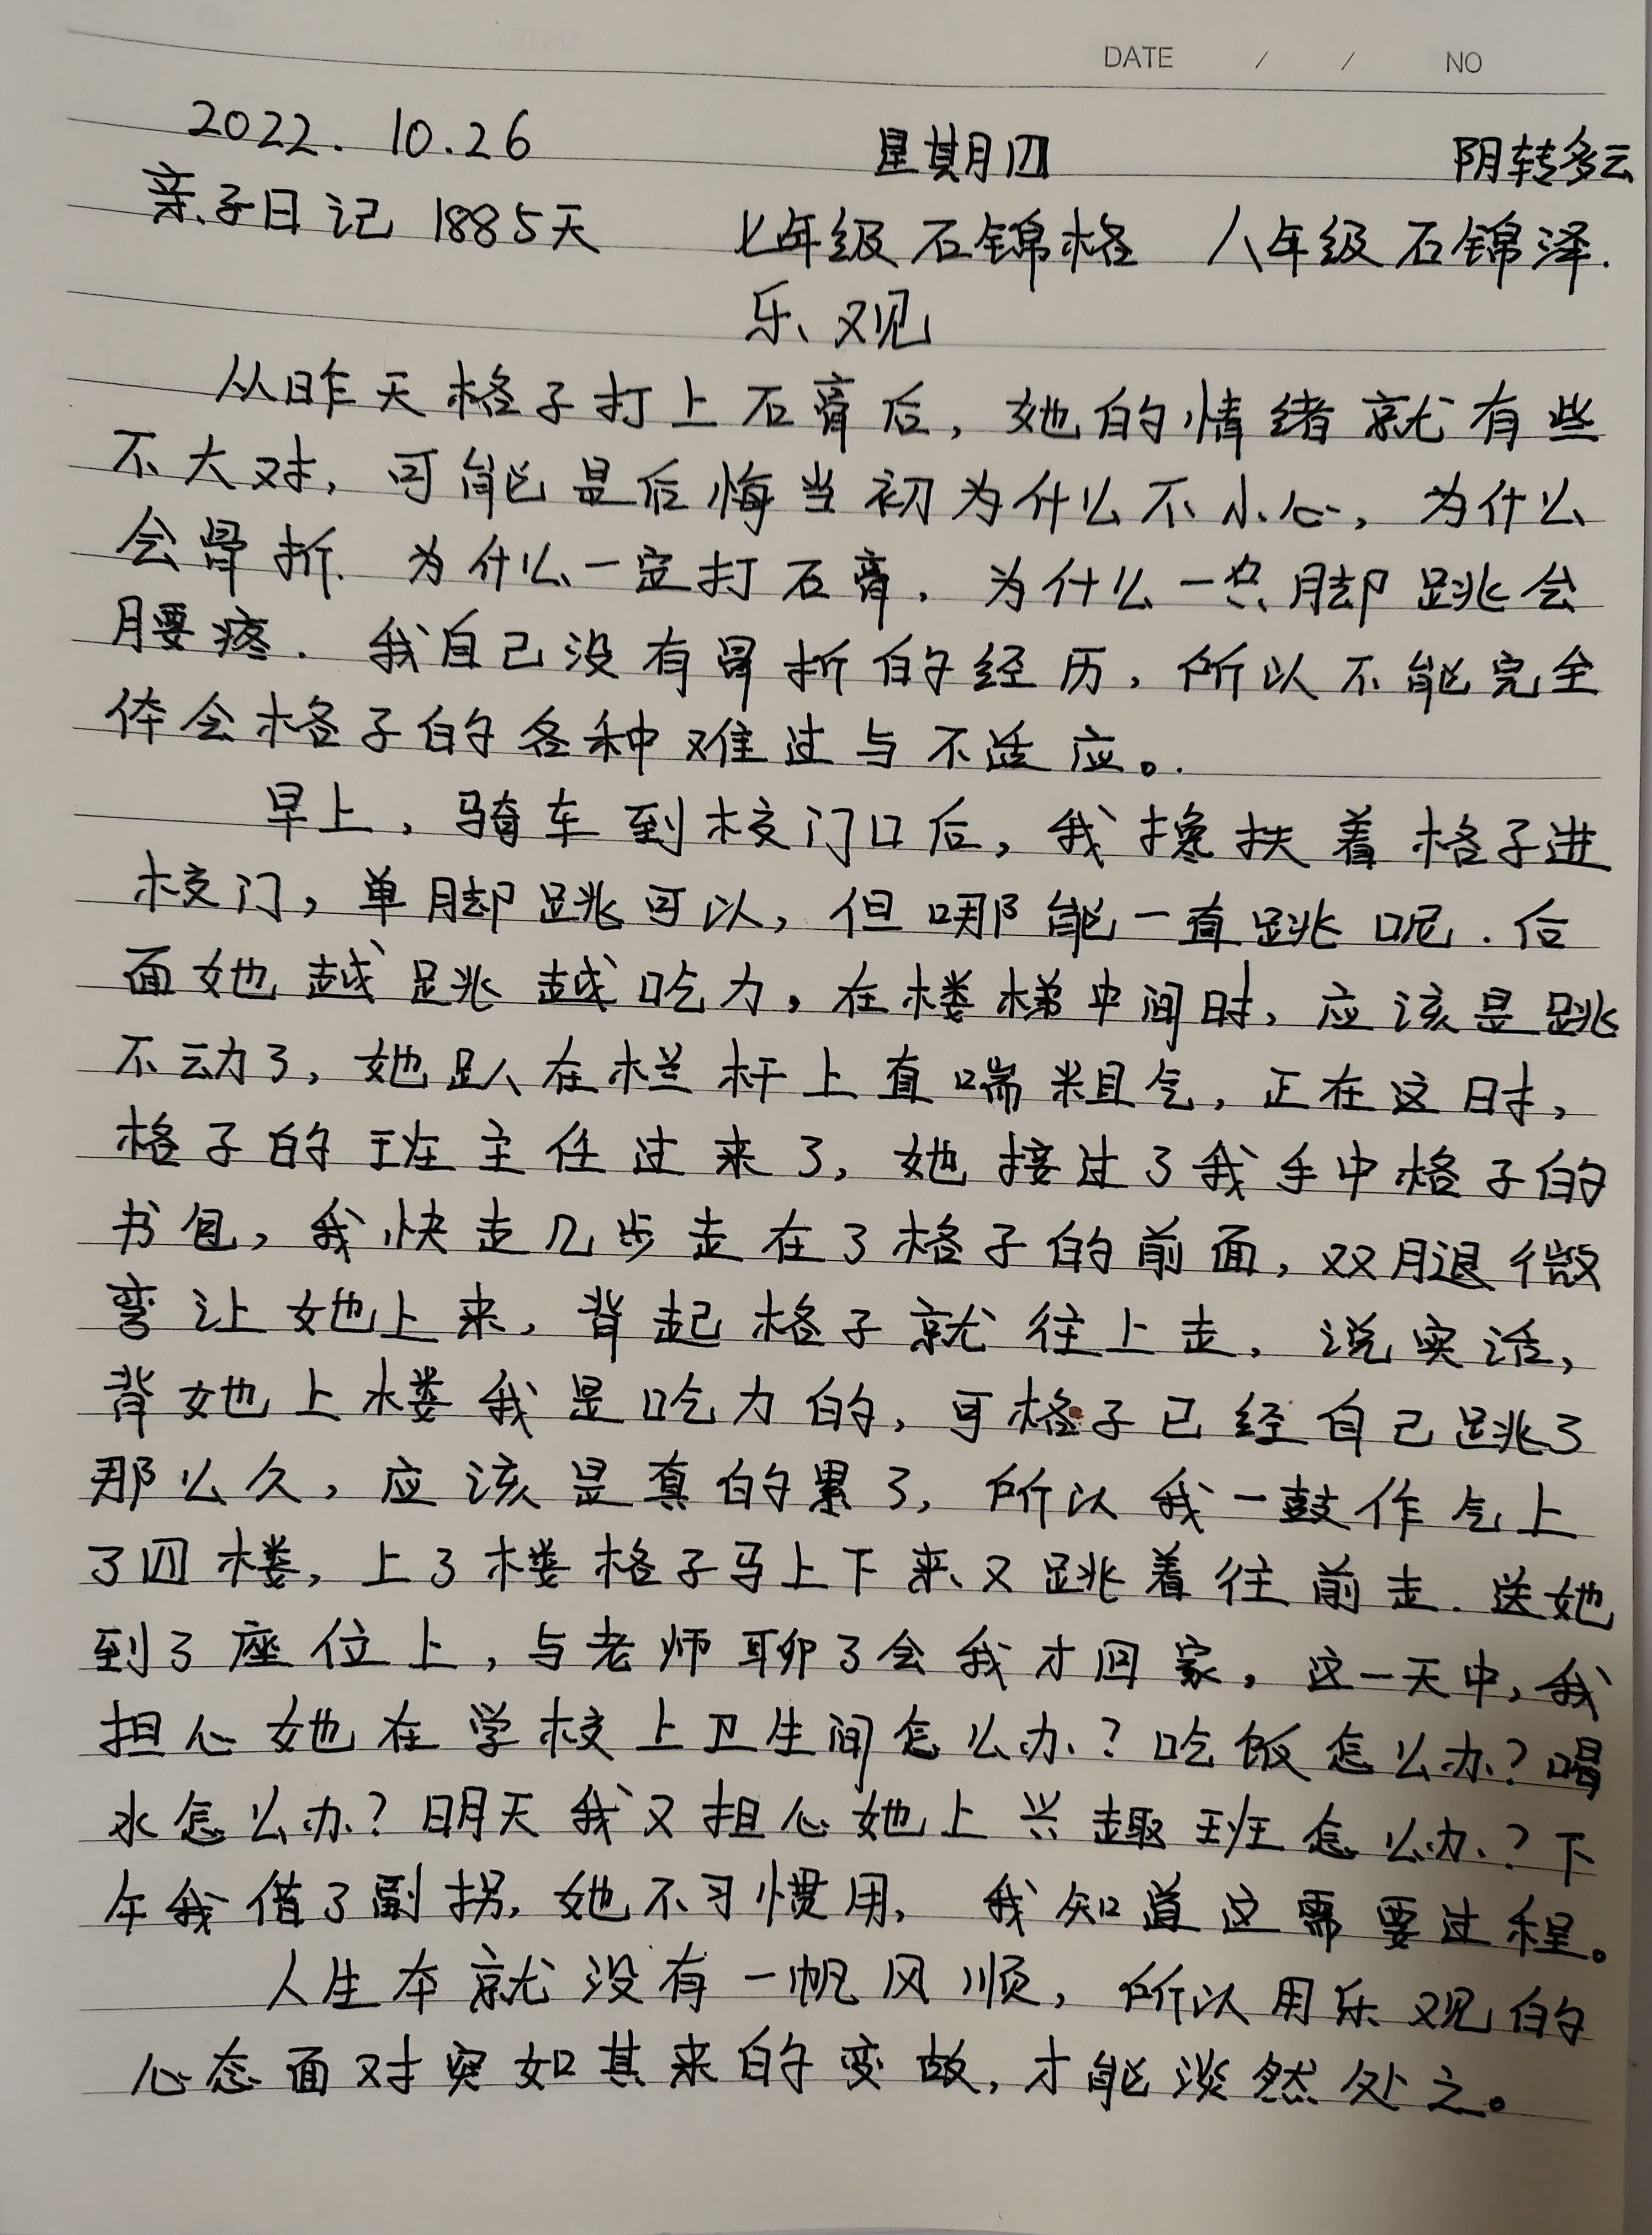 DATE / / NO
2022. 10.26 星期四 阴转多云
亲子日记 1885天 七年级 石锦格 八年级 石锦泽.
乐观
从昨天格子打上石膏后，她的情绪就有些
不大对，可能是后悔当初为什么不小心，为什么
会骨折．为什么一定打石膏．为什么一只脚跳会
腰疼．我自己没有骨折的经历，所以不能完全
体会格子的各种难过与不适应。.
早上，骑车到校门口后，我搀扶着格子进
校门，单脚跳可以，但哪能一直跳呢．后
面她越跳越吃力，在楼梯中间时，应该是跳
不动了，她趴在栏杆上直喘粗气，正在这时，
格子的班主任过来了，她接过了我手中格子的
书包，我快走几步走在了格子的前面，双腿微
弯让她上来，背起格子就往上走，说实话，
背她上楼我是吃力的，可格子已经自己跳了
那么久，应该是真的累了，所以我一鼓作气上
了四楼，上了楼格子马上下来又跳着往前走．送她
到了座位上，与老师聊了会我才回家，这一天中，我
担心她在学校上卫生间怎么办？吃饭怎么办？喝
水怎么办？明天我又担心她上兴趣班怎么办？下
午我借了副拐，她不习惯用，我知道这需要过程。
人生本就没有一帆风顺，所以用乐观的
心态面对突如其来的变故，才能淡然处之。